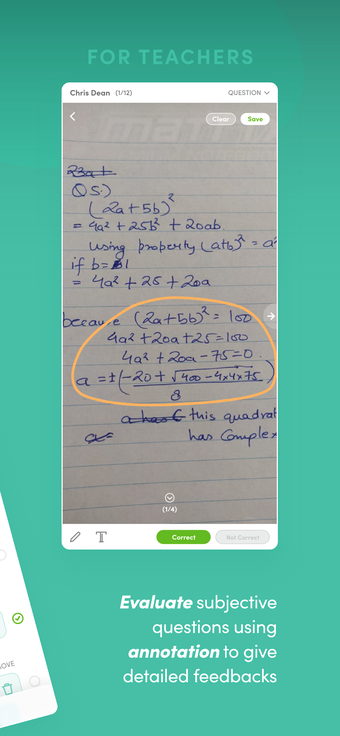 FOR TEACHERS
Chris Dean (1/12)
QUESTION
Clear
Save
Q 5:)
(2a+5b)²
= 4a² + 25b² + 20ab
using property (a+b)² = a²
if b= 1
= 4a² + 25 + 20a
because (2a+5b)² = 100
4a² + 20a+25=100
4a² + 20a -75=0.
a = ±(-20 + √400 -4x4x75)
8
a has C this quadrat
a=
has Complex
(1/4)
T
Correct
Not Correct
OVE
Evaluate subjective
questions using
annotation to give
detailed feedbacks